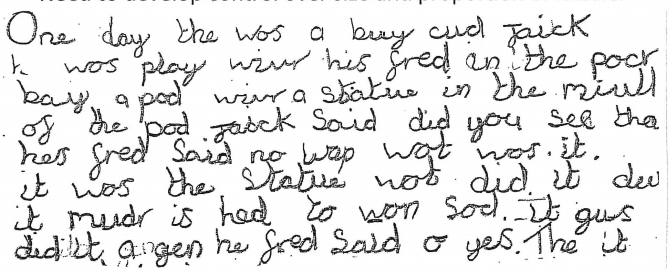 One day the wos a buy cud Jaick
h wos play wivr his fred in the pocr
bay a pod wivr a statue in the miull
of the pod Jaick Said did you see tha
hes fred Said no wap wot wos.it.
it wos the Statue wot did it dew
it mudr is hed to won Sod. It gus
did it a gen he fred Said o yes. The it